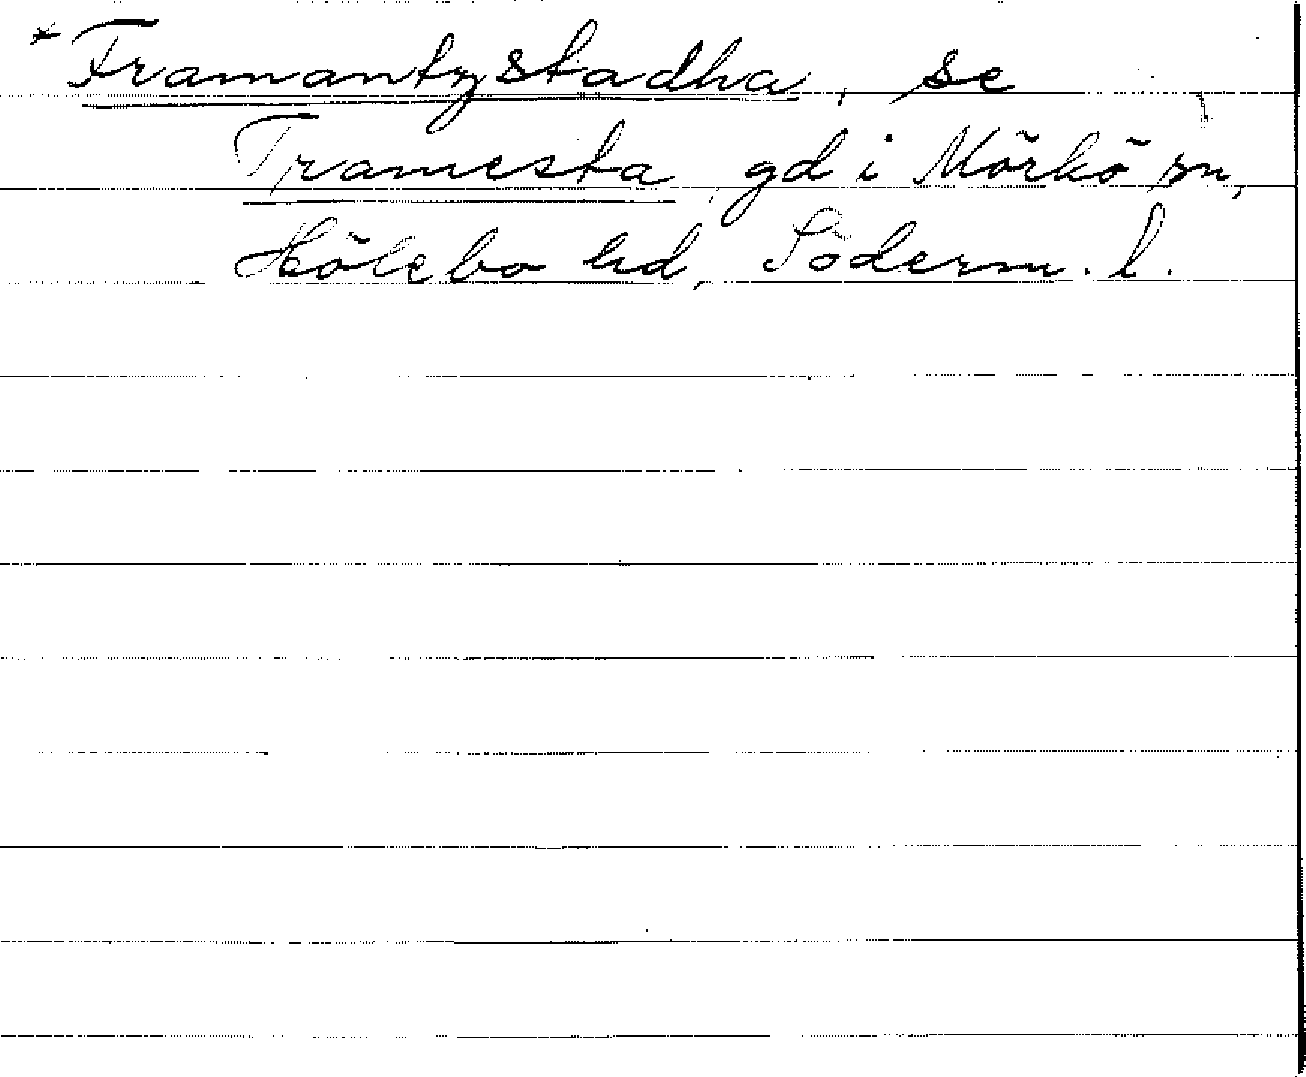 *Framantystadha, se
Tramesta, gd i Mörkö sn,
Hölebo hd, Söderm. l.